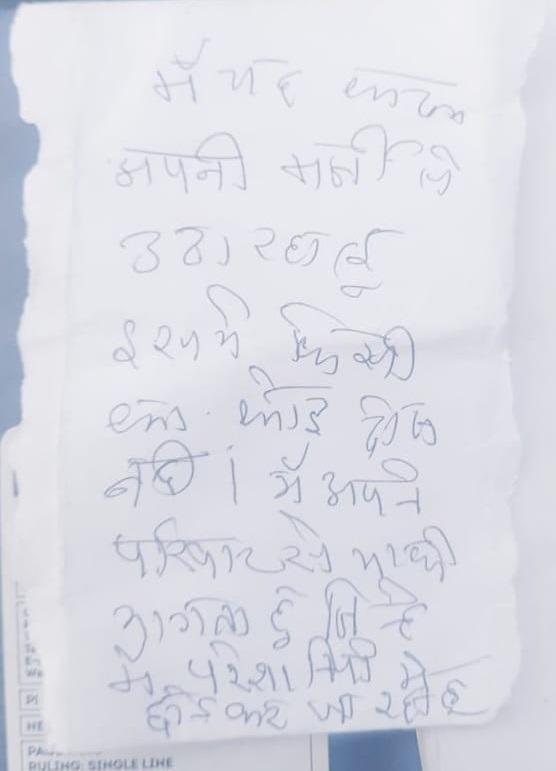 मैं यह कदम
अपनी मर्जी से
उठा रहा हूँ
इसमे किसी
का कोई दोष
नहि । मैं अपने
परिवार से माफी
मागता हूँ जिन्हे
मैं परेशानियों में
छोड कर जा रहा हूँ
PA
RULING: SINGLE LINE